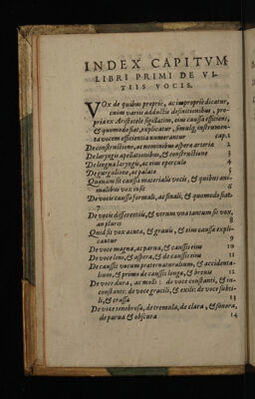 INDEX CAPITVM
LIBRI PRIMI DE VI-
TIIS VOCIS.
VOx de quibus propriè, ac impropriè dicatur,
cum varijs adductis definitionibus, pro-
pria ex Aristotele sigillatim, eius caussa efficiens,
& quomodo fiat, explicatur, simulq; instrumen-
ta vocem efficientia numerantur cap. 1
De constructione, ac nominibus asperæ arteriæ 2
De laryngis apellationibus, & constructione 3
De lingua laryngis, ac eius operculo 4
De gurgulione, ac palato 5
Quænam sit caussa materialis vocis, & quibus ani-
malibus vox insit 6
De vocis caussa formali, ac finali, & quomodo fiat
7
De vocis differentijs, & vtrum vna tantum sit vox,
an plures 8
Quid sit vox acuta, & grauis, & eius caussæ expli-
cantur 9
De voce magna, ac parua, & caussis eius 10
De voce leni, & aspera, & de caussis eius 11
De caussis vocum præternaturalium, & accidenta-
lium, & primo de caussis longæ, & breuis 12
De voce dura, ac molli: de voce constanti, & in-
constanti: de voce gracili, & exili: de voce subti-
li, & crassa 13
De voce tenebrosa, de tremula, de clara, & sonora,
de parua & obscura 14